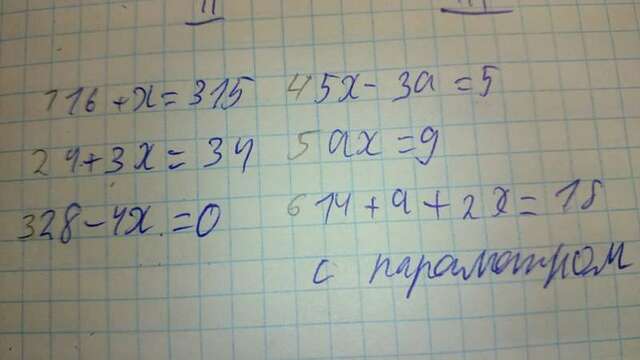 1 16 + x = 315
2 4 + 3x = 34
3 28 - 4x = 0
4 5x - 3a = 5
5 ax = 9
6 14 + a + 2x = 18
с параметром